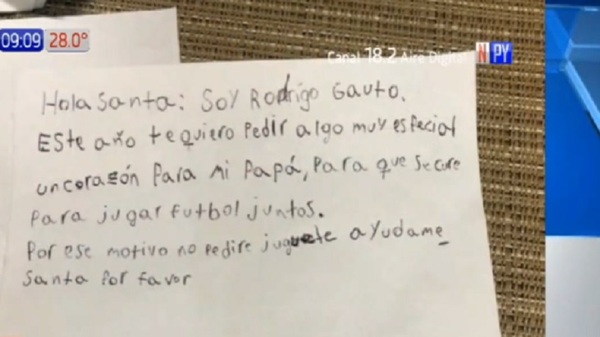 09:09 28.0°
Canal 18.2 Aire Digital NPY
Hola Santa: Soy Rodrigo Gauto.
Este año te quiero pedir algo muy especial
un corazón para mi papá, para que se cure
para jugar futbol juntos.
Por ese motivo no pedire juguete ayudame
Santa por favor